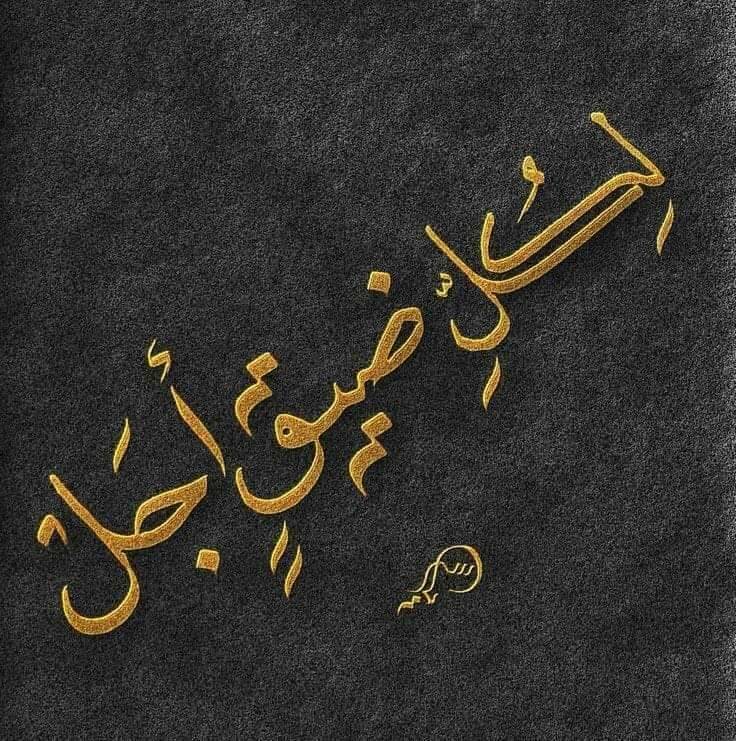 لِكُلِّ ضِيقٍ أَجَلْ